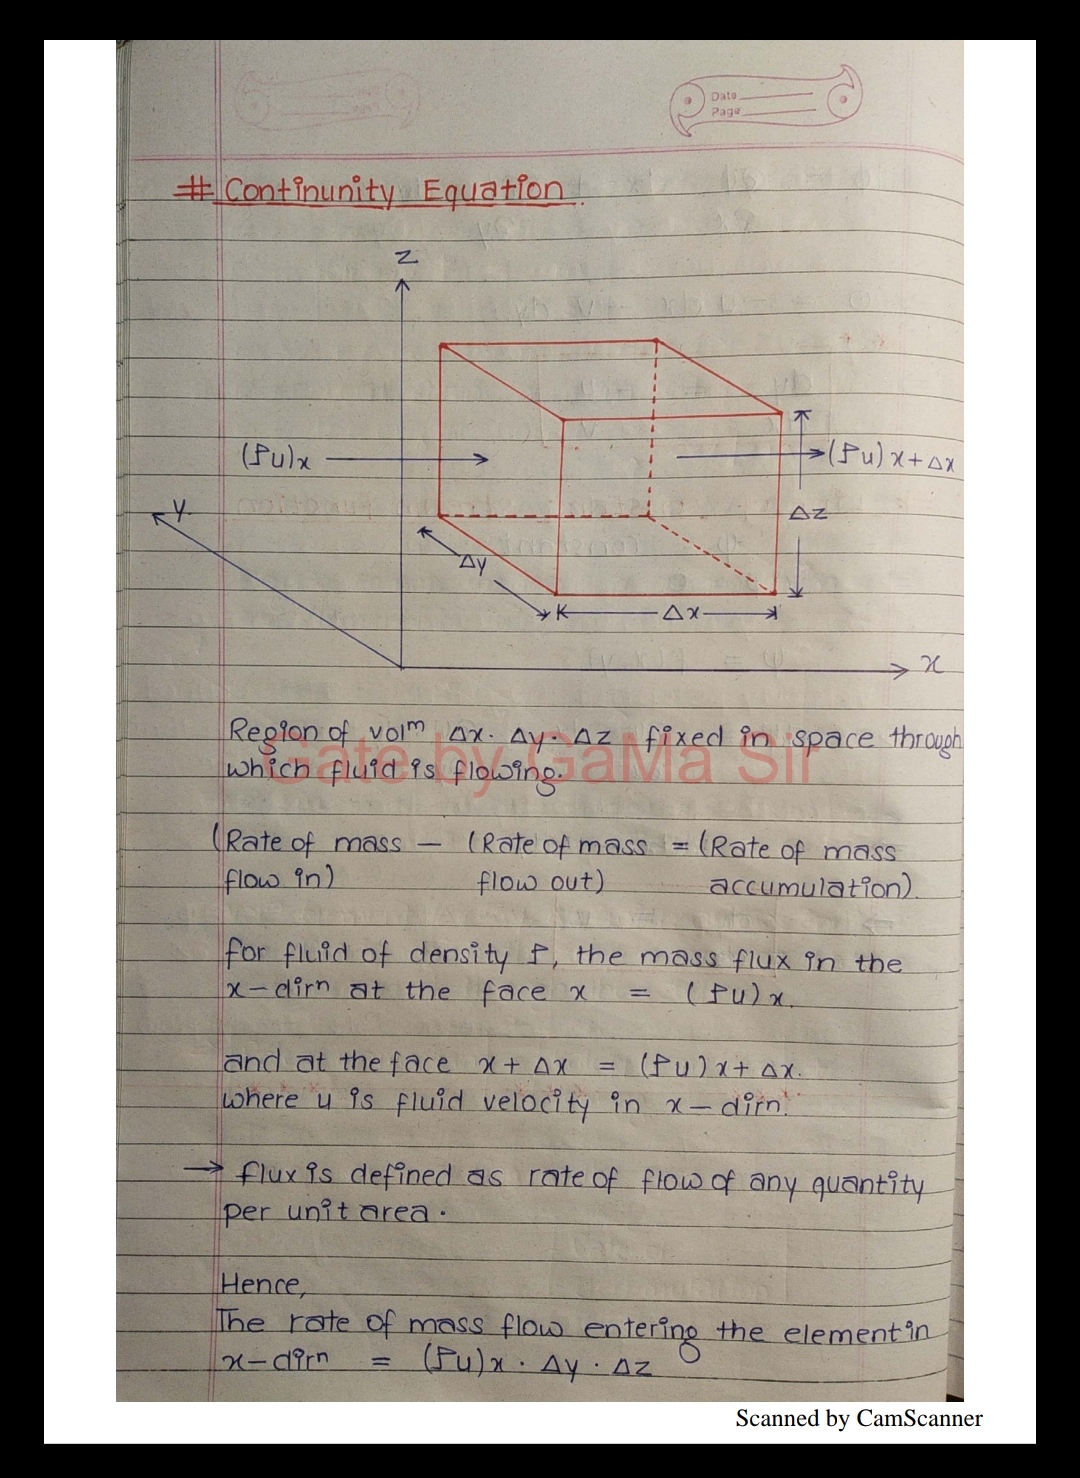 Date
Page
# Continunity Equation
Z
(ρu)x
(ρu) x + Δx
y
Δz
Δy
Δx
x
Region of volm Δx. Δy. Δz fixed in space through
which fluid is flowing.
Gate by GaMa Sir
(Rate of mass – (Rate of mass = (Rate of mass
flow in) flow out) accumulation).
for fluid of density ρ, the mass flux in the
x-dirn at the face x = (ρu)x.
and at the face x + Δx = (ρu) x + Δx.
where u is fluid velocity in x – dirn.
→ flux is defined as rate of flow of any quantity
per unit area.
Hence,
The rate of mass flow entering the element in
x-dirn = (ρu)x . Δy . Δz
Scanned by CamScanner